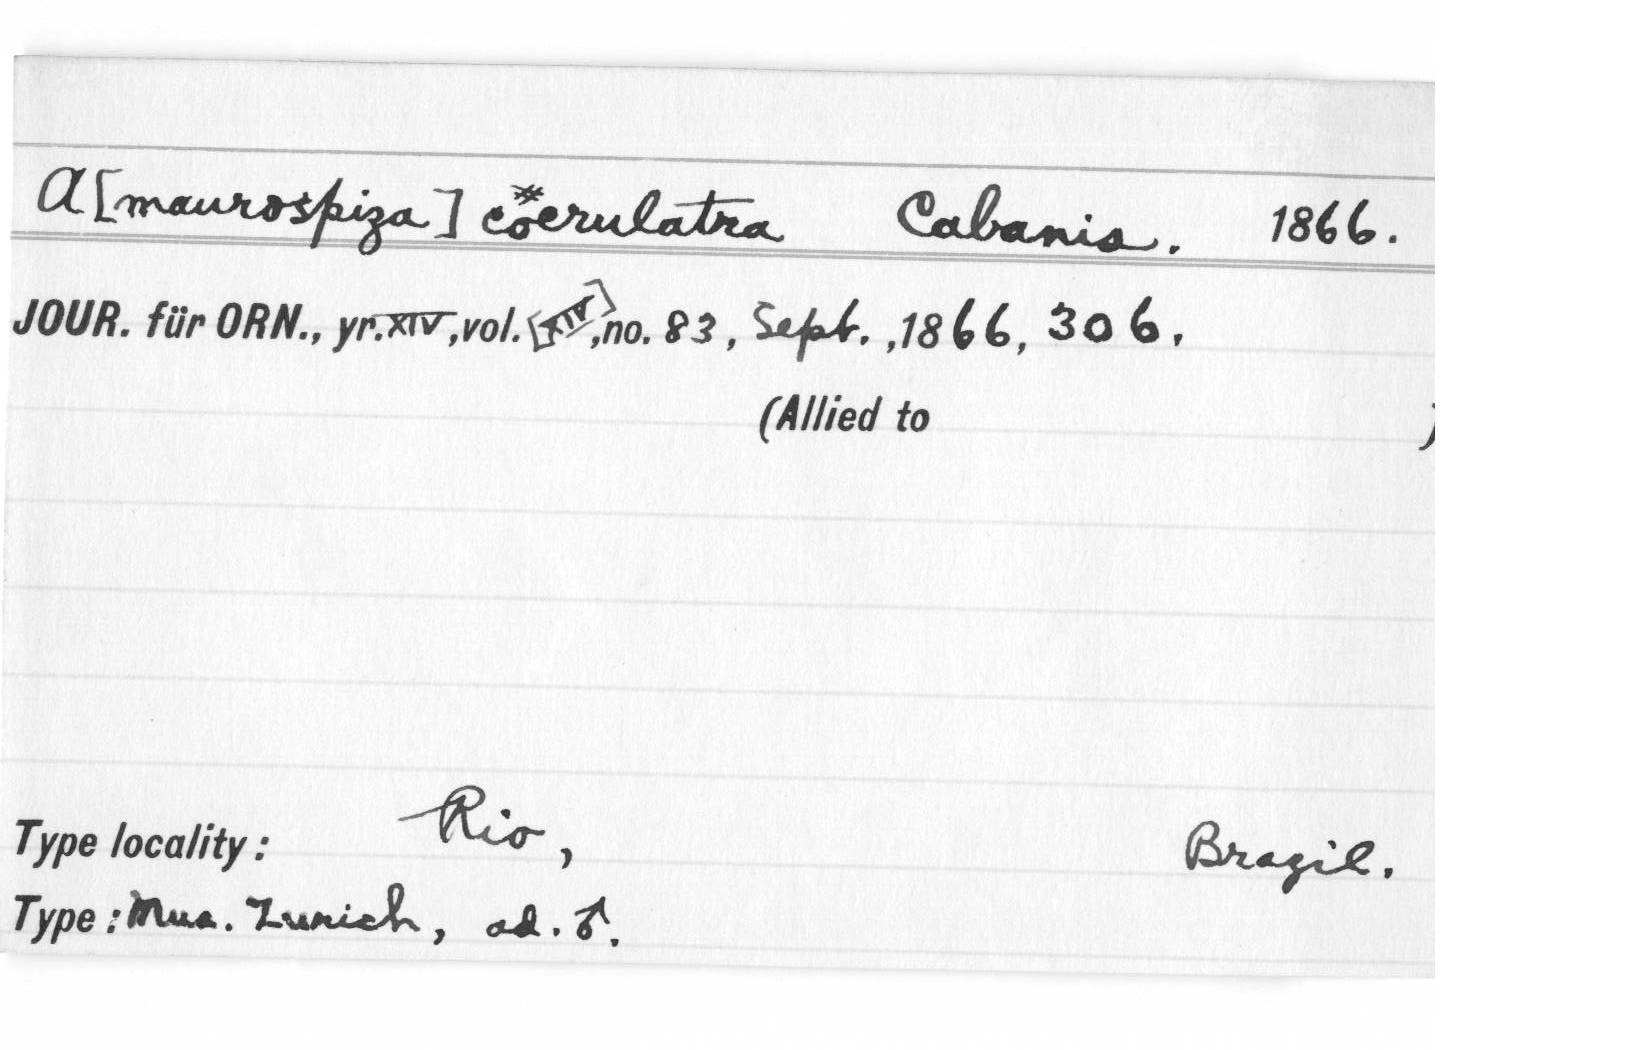 A[maurospiza] cöerulatra Cabanis. 1866.
JOUR. für ORN., yr. XIV, vol. [XIV], no. 83, Sept., 1866, 306.
(Allied to )
Type locality: Rio, Brazil.
Type: Mus. Zurich, ad. ♂.